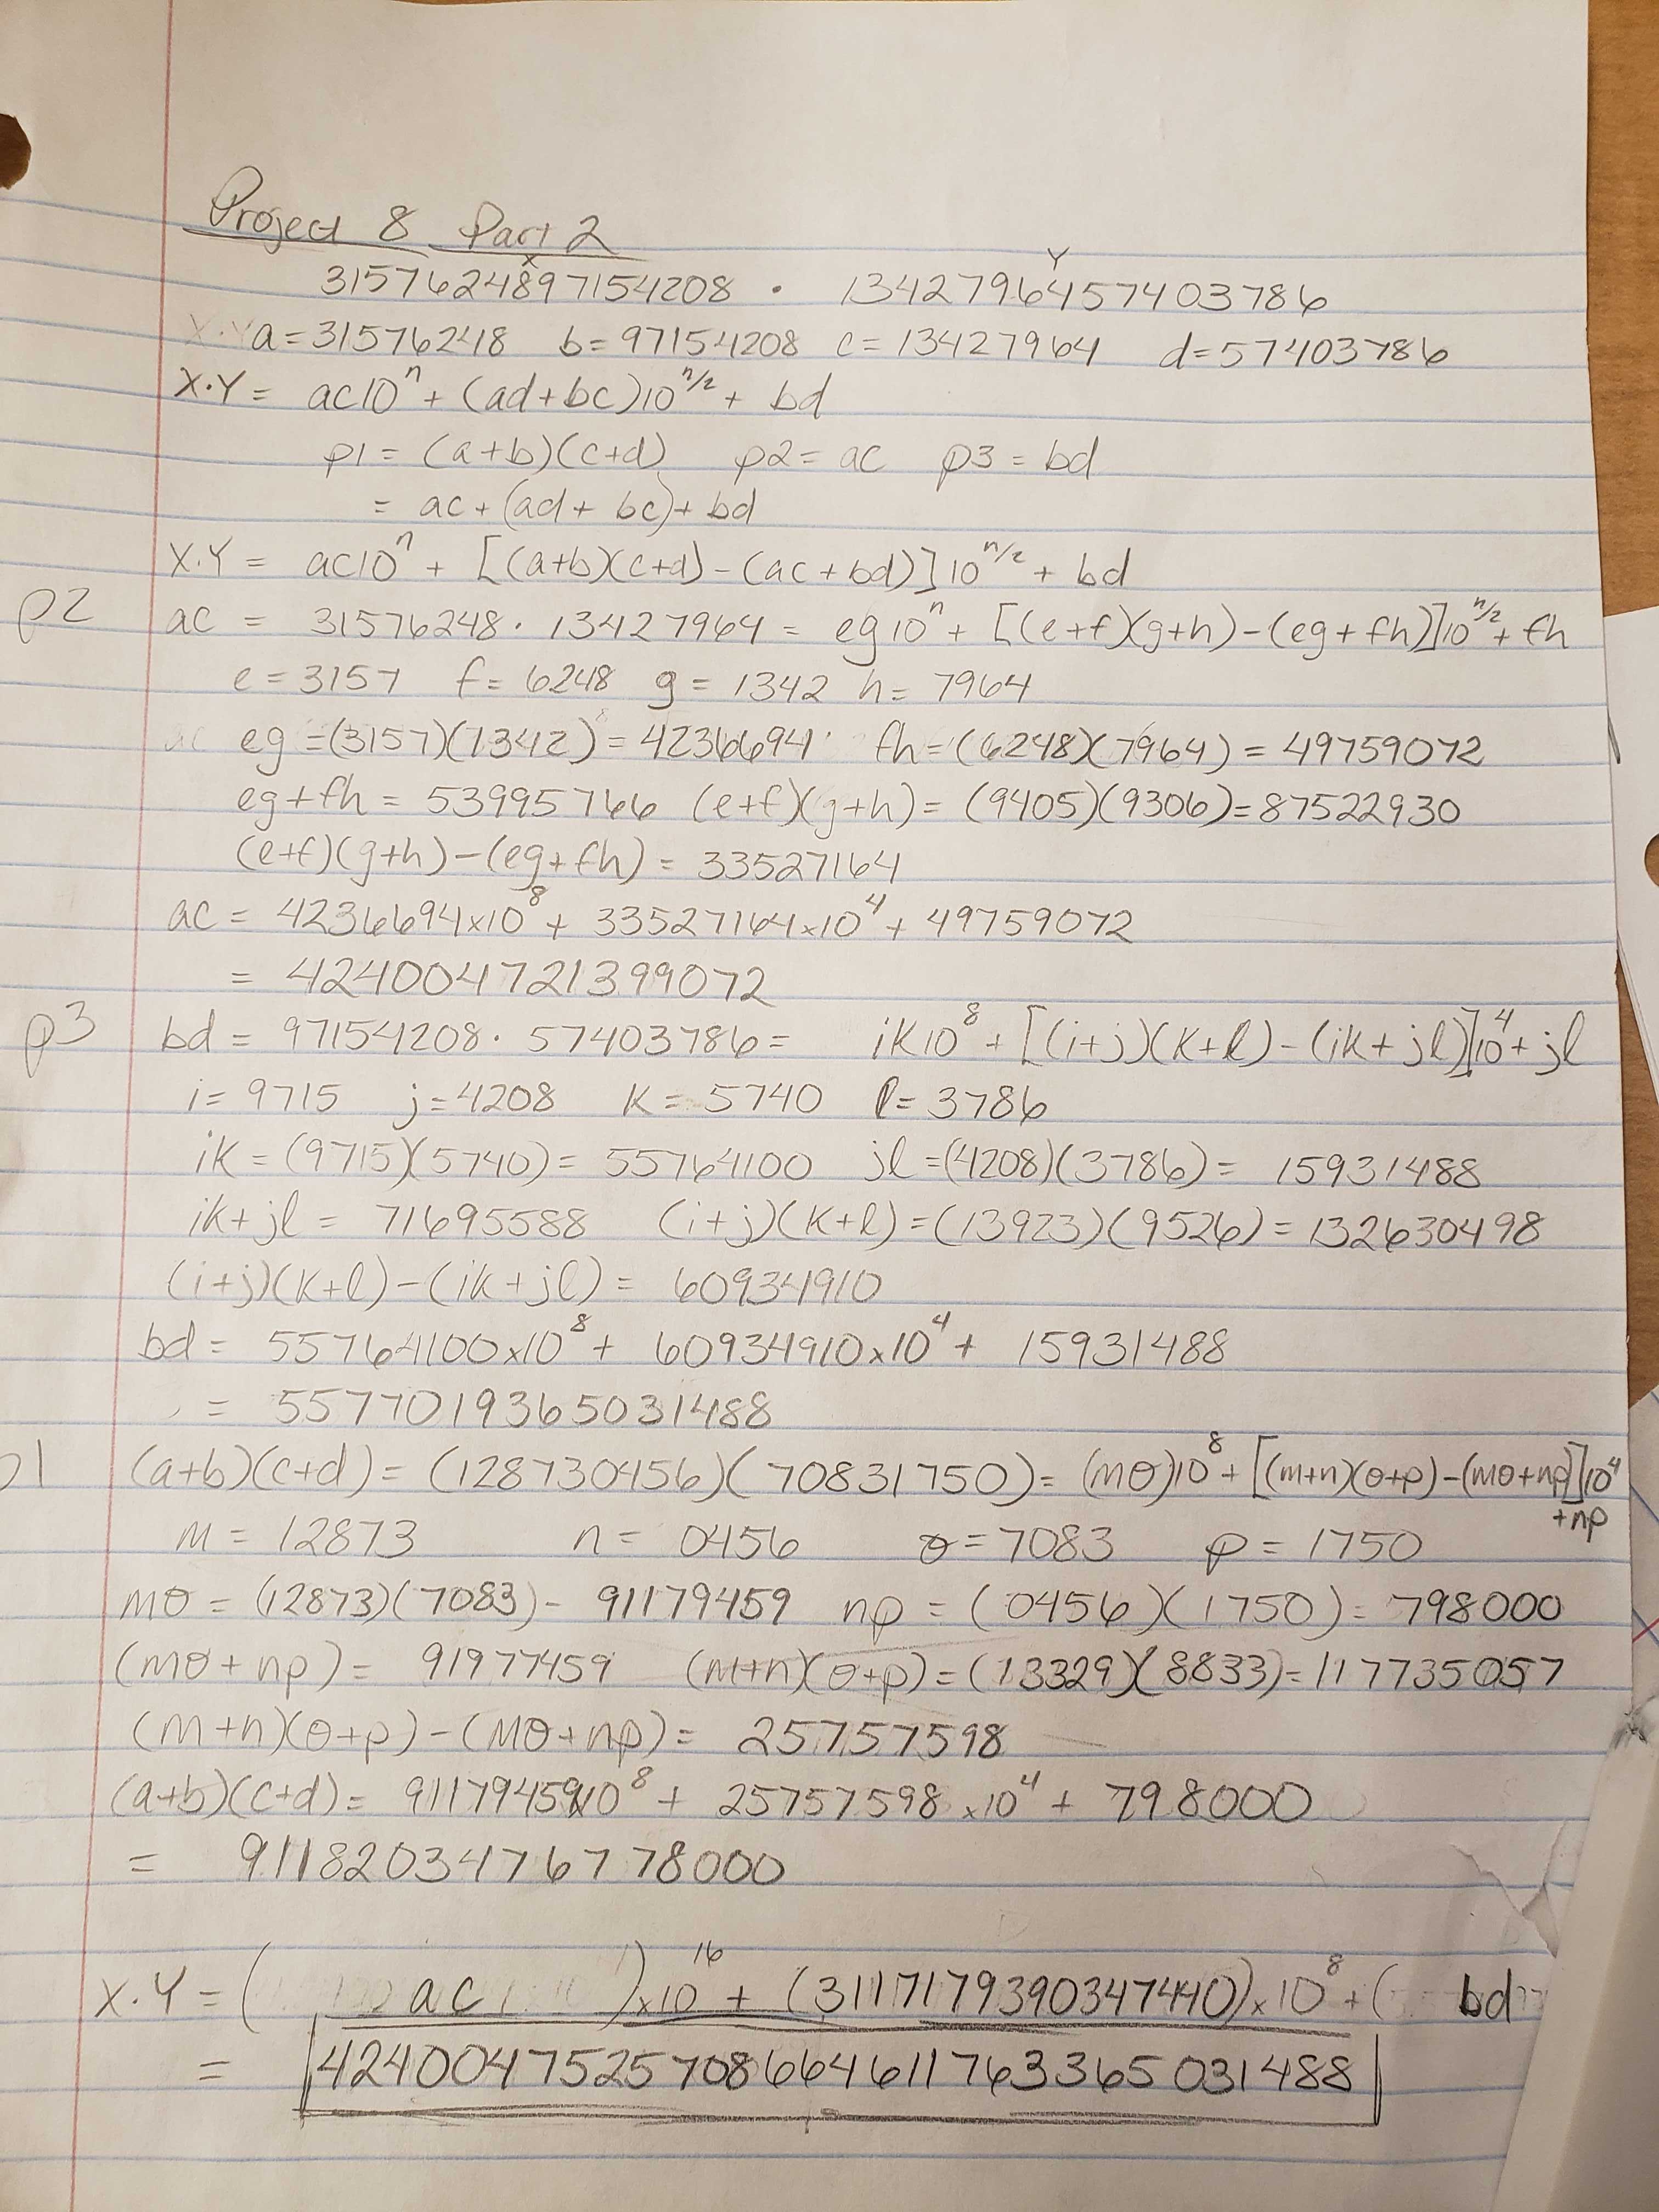 Project 8 Part 2
X Y
3157624897154208 · 1342796457403786
a=31576248 b=97154208 c=13427964 d=57403786
X·Y= ac10^n + (ad+bc)10^n/2 + bd
p1 = (a+b)(c+d) p2= ac p3 = bd
= ac + (ad + bc) + bd
X·Y = ac10^n + [(a+b)(c+d) - (ac + bd)]10^n/2 + bd
p2 ac = 31576248 · 13427964 = eg10^n + [(e+f)(g+h)-(eg+fh)]10^n/2 + fh
e = 3157 f= 6248 g = 1342 h= 7964
eg =(3157)(1342) = 4236694 fh=(6248)(7964) = 49759072
eg+fh = 53995766 (e+f)(g+h)= (9405)(9306)=87522930
(e+f)(g+h)-(eg+fh) = 33527164
ac = 4236694x10^8 + 33527164x10^4 + 49759072
= 424004721399072
p3 bd = 97154208 · 57403786= ik10^8 + [(i+j)(k+l)-(ik+jl)]10^4+jl
i= 9715 j=4208 k= 5740 l= 3786
ik = (9715)(5740)= 55764100 jl=(4208)(3786)= 15931488
ik+jl = 71695588 (i+j)(k+l)=(13923)(9526)=132630498
(i+j)(k+l)-(ik+jl) = 60934910
bd= 55764100x10^8 + 60934910x10^4 + 15931488
= 5577019365031488
(a+b)(c+d)= (128730456)(70831750)= (mθ)10^8+[(m+n)(θ+p)-(mθ+np)]10^4
+np
m = 12873 n= 0456 θ=7083 p= 1750
mθ = (12873)(7083)- 91179459 np = (0456)(1750)= 798000
(mθ+np)= 91977459 (m+n)(θ+p)=(13329)(8833)=117735057
(m+n)(θ+p)-(mθ+np)= 25757598
(a+b)(c+d)= 91179459x10^8 + 25757598x10^4 + 798000
= 9118203476778000
X·Y = ( ac )x10^16 + (3117179390347440)x10^8 + ( bd
= 4240047525708664611763365031488